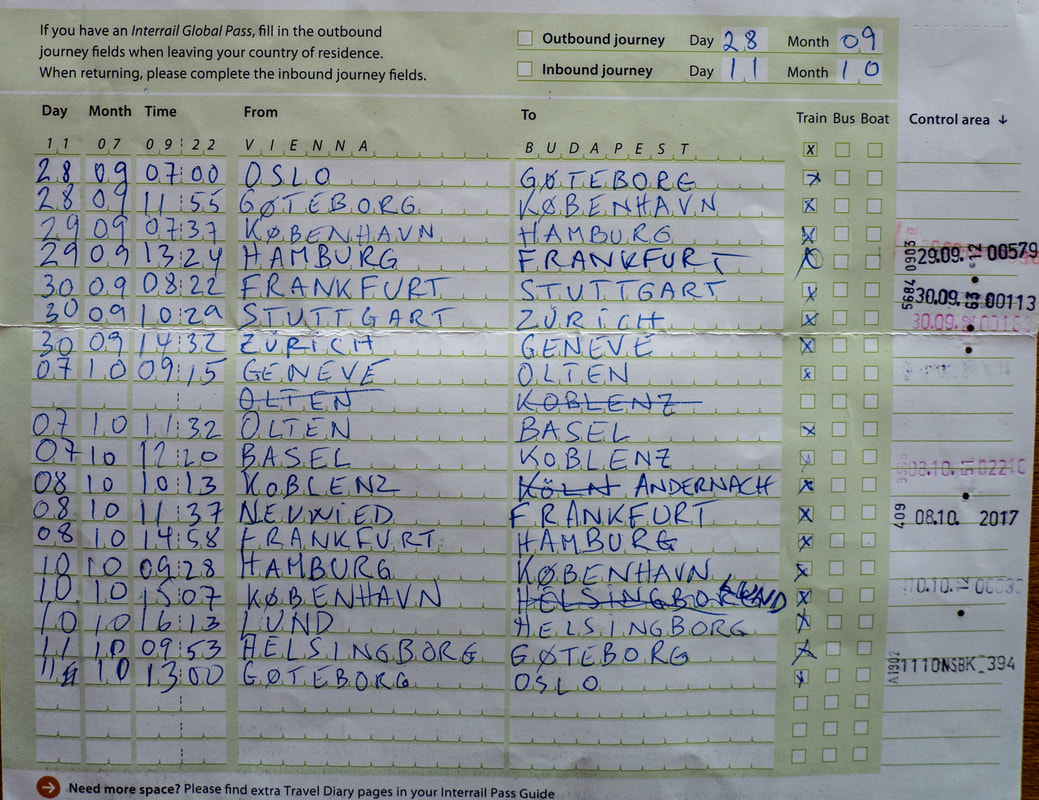 If you have an Interrail Global Pass, fill in the outbound
journey fields when leaving your country of residence.
When returning, please complete the inbound journey fields.
Outbound journey Day 28 Month 09
Inbound journey Day 11 Month 10
Day Month Time From To Train Bus Boat Control area ↓
11 07 09:22 VIENNA BUDAPEST x
28 09 07:00 OSLO GØTEBORG x
28 09 11:55 GØTEBORG KØBENHAVN x
29 09 07:37 KØBENHAVN HAMBURG x
29 09 13:24 HAMBURG FRANKFURT x 0903 29.09. 00579
30 09 08:22 FRANKFURT STUTTGART x 5684 30.09. 63 00113
30 09 10:29 STUTTGART ZÜRICH x 30.09.
30 09 14:32 ZÜRICH GENEVE x
07 10 09:15 GENEVE OLTEN x
OLTEN KOBLENZ
07 10 11:32 OLTEN BASEL x
07 10 12:20 BASEL KOBLENZ x 08.10.
08 10 10:13 KOBLENZ KÖLN ANDERNACH x
08 10 11:37 NEUWIED FRANKFURT x 409 08.10. 2017
08 10 14:58 FRANKFURT HAMBURG x
10 10 09:28 HAMBURG KØBENHAVN x 10.10.
10 10 15:07 KØBENHAVN HELSINGBORG LUND x
10 10 16:13 LUND HELSINGBORG x
11 10 09:53 HELSINGBORG GØTEBORG x A1902 1110NSBK_394
11 10 13:00 GØTEBORG OSLO x
Need more space? Please find extra Travel Diary pages in your Interrail Pass Guide